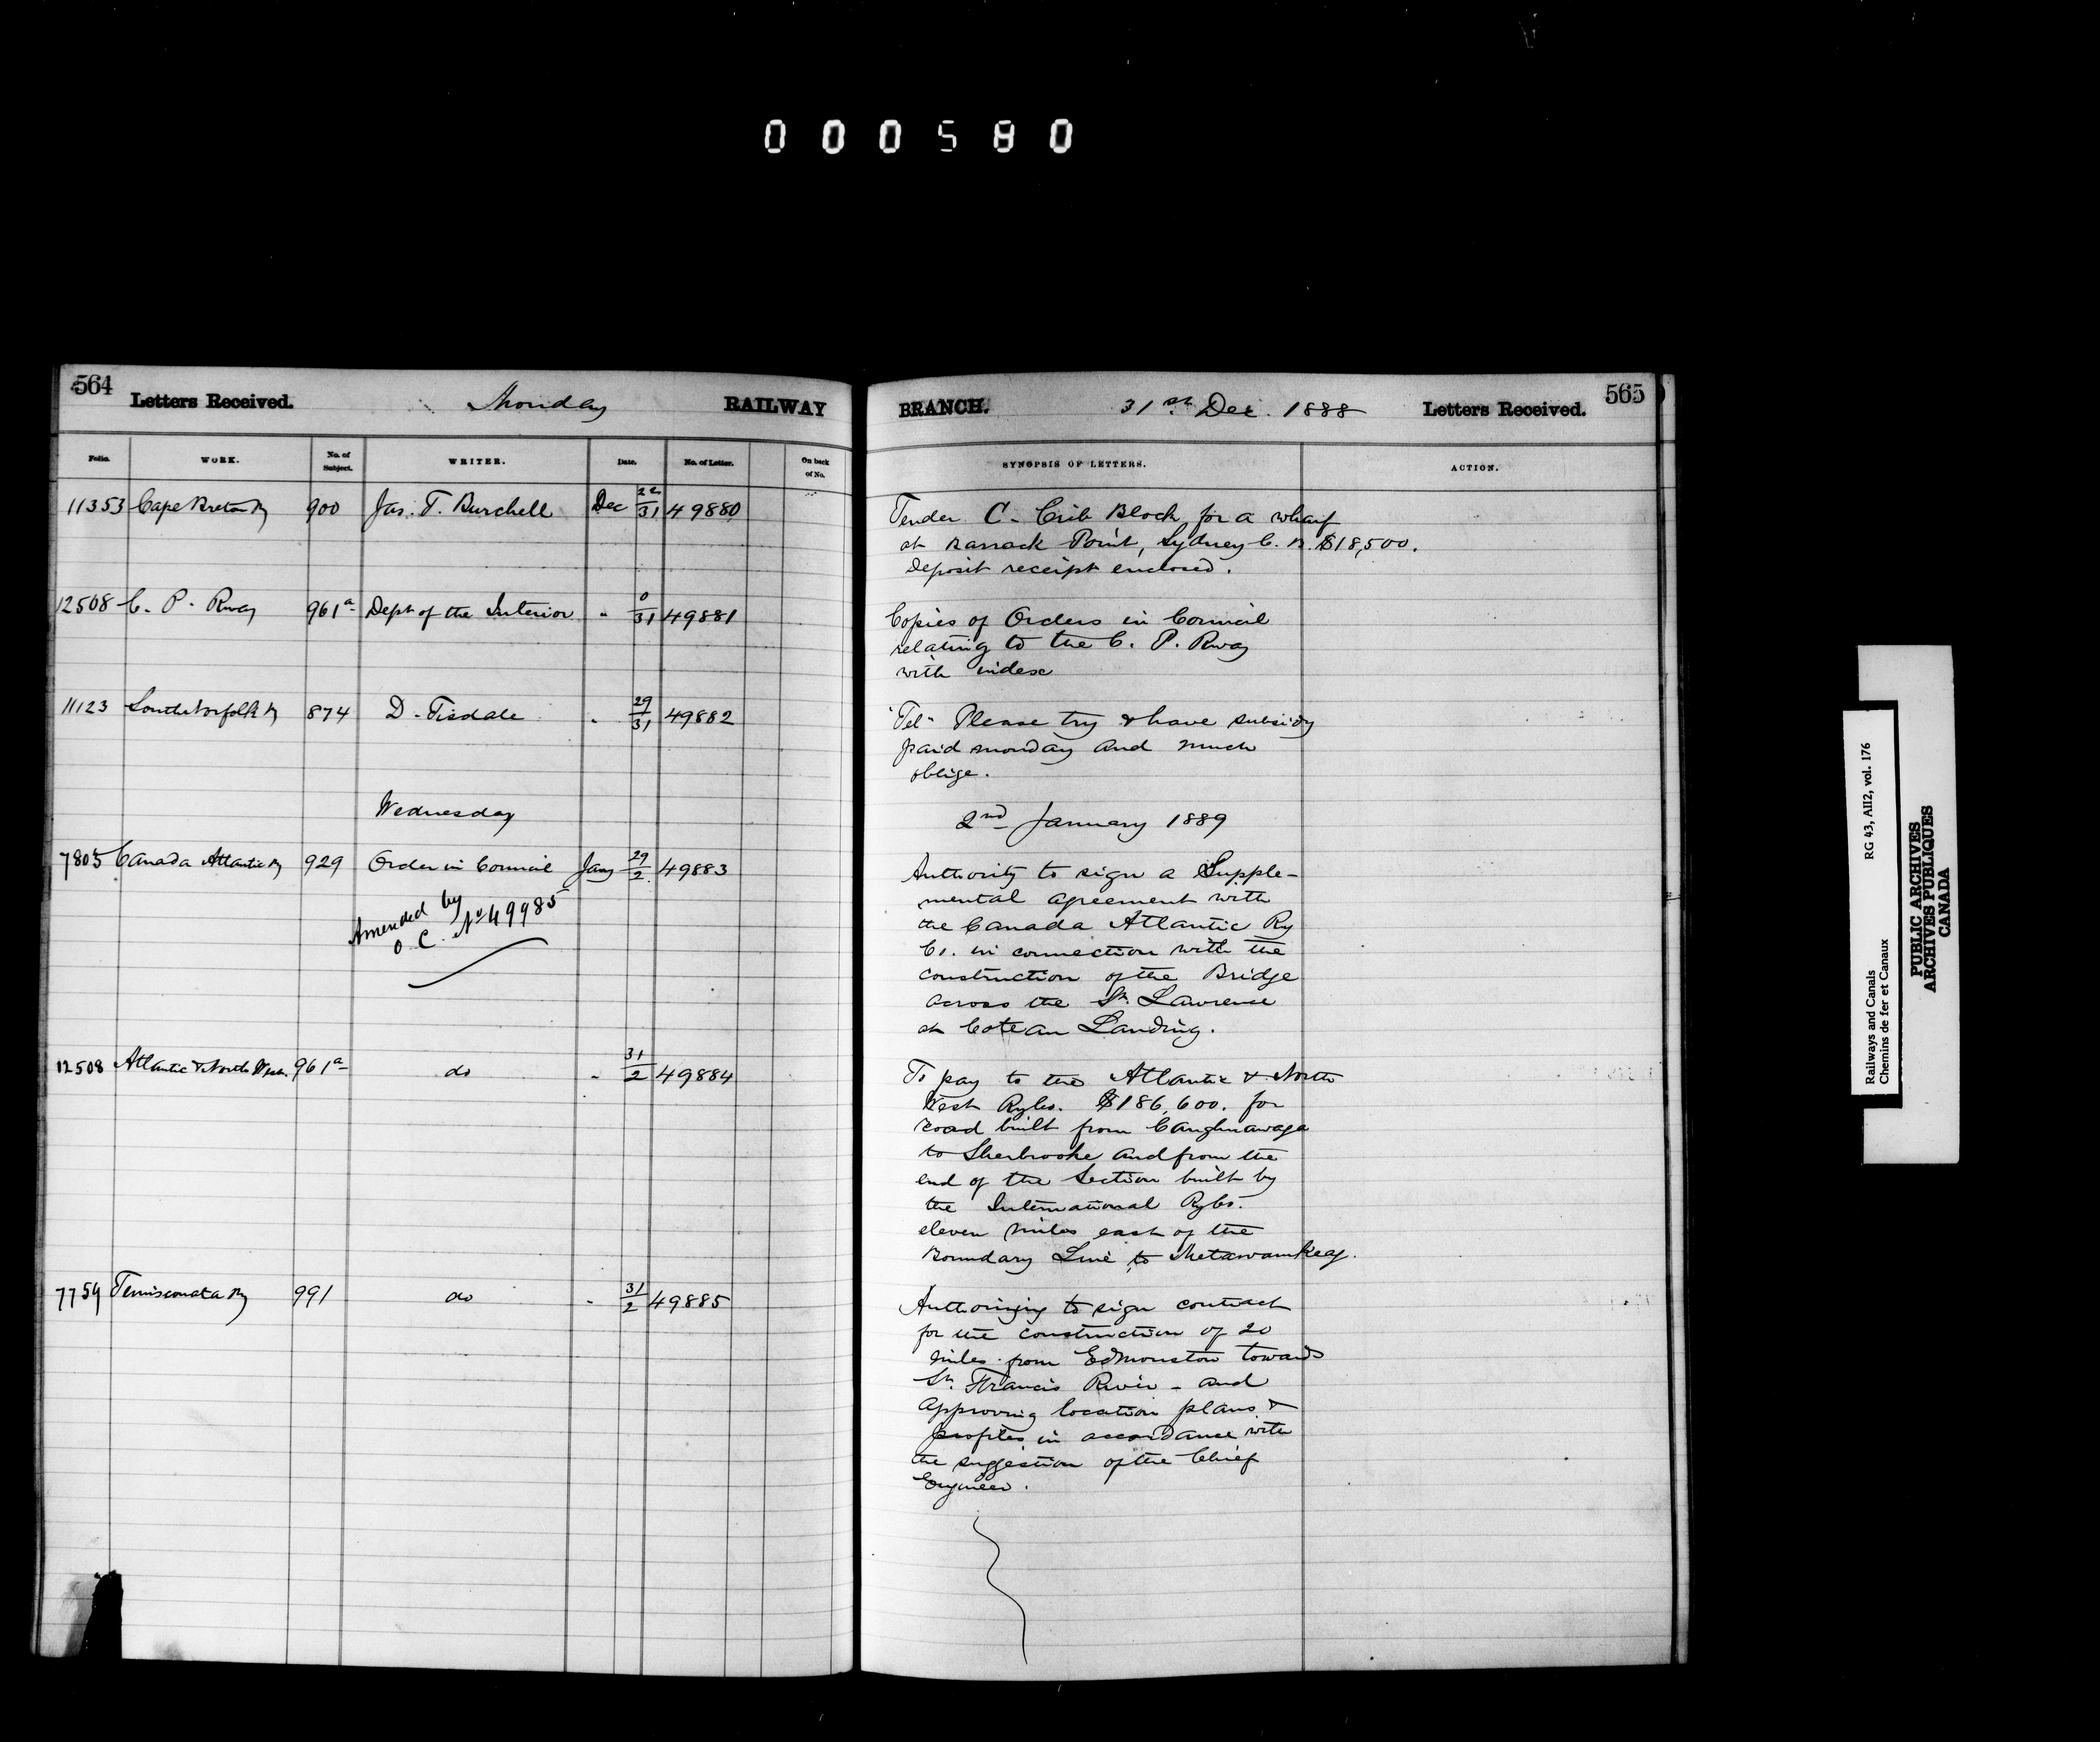 000580
564 Letters Received. Monday RAILWAY
Folio. WORK. No. of Subject. WRITER. Date. No. of Letter. On back of No.
11353 Cape Breton Ry 900 Jas. T. Burchell Dec 22/31 49880
12508 C. P. Rway 961a Dept of the Interior " 0/31 49881
11123 South Norfolk Ry 874 D. Tisdale " 29/31 49882
Wednesday
7805 Canada Atlantic Ry 929 Order in Council Jany 29/2 49883
Amended by
O. C. No 49985
12508 Atlantic & North West. 961a do " 31/2 49884
7759 Temisconata Ry 991 do " 31/2 49885
BRANCH. 31st Dec. 1888 Letters Received. 565
SYNOPSIS OF LETTERS. ACTION.
Tender C. Crib Block for a wharf
at Barrack Point, Sydney C. B. $18,500.
Deposit receipt enclosed.
Copies of Orders in Council
relating to the C. P. Rway
with index
"Tel" Please try & have subsidy
paid monday and much
oblige.
2nd January 1889
Authority to sign a Supple-
mental agreement with
the Canada Atlantic Ry
Co. in connection with the
construction of the Bridge
across the St. Lawrence
at Coteau Landing.
To pay to the Atlantic & North
West Ry Co. $186,600. for
road built from Caughnawaga
to Sherbrooke and from the
end of the Section built by
the International Ry Co.
eleven miles east of the
Boundary Line to Metawamkeag.
Authorizing to sign contract
for the construction of 20
miles from Edmonston towards
St. Francis River - and
approving location plans &
profiles in accordance with
the suggestion of the Chief
Engineer.
Railways and Canals RG 43, AII2, vol. 176
Chemins de fer et Canaux
PUBLIC ARCHIVES
ARCHIVES PUBLIQUES
CANADA